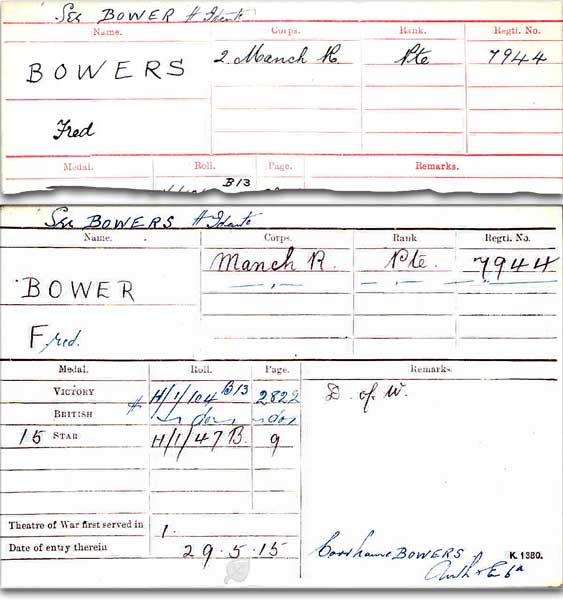 See BOWER
Name. Corps. Rank. Regtl. No.
BOWERS 2. Manch R. Pte 7944
Fred
Medal. Roll. Page. Remarks.
B13
See BOWERS
Name. Corps. Rank Regtl. No.
BOWER Manch R. Pte. 7944
Fred.
Medal. Roll. Page. Remarks.
VICTORY H/1/104 B13 2822 D. of. W.
BRITISH do do
15 STAR H/1/47 B. 9
Theatre of War first served in 1.
Date of entry therein 29.5.15
BOWERS K. 1380.